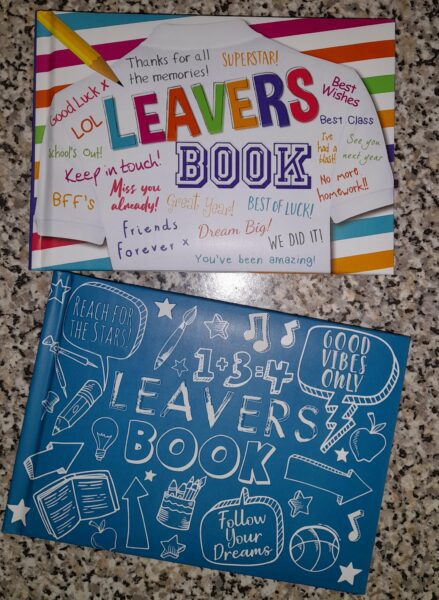 Thanks for all
the memories!
SUPERSTAR!
Good Luck x
LOL
LEAVERS
Best
Wishes
Best Class
School's Out!
Keep in touch!
BOOK
I've
had a
blast!
See you
next year
Miss you
already!
Great Year!
BEST OF LUCK!
No more
homework!!
BFF's
Friends
Forever x
Dream Big!
WE DID IT!
You've been amazing!
REACH FOR
THE STARS!
GOOD
VIBES
ONLY
1+3=4
LEAVERS
BOOK
Follow
Your
Dreams